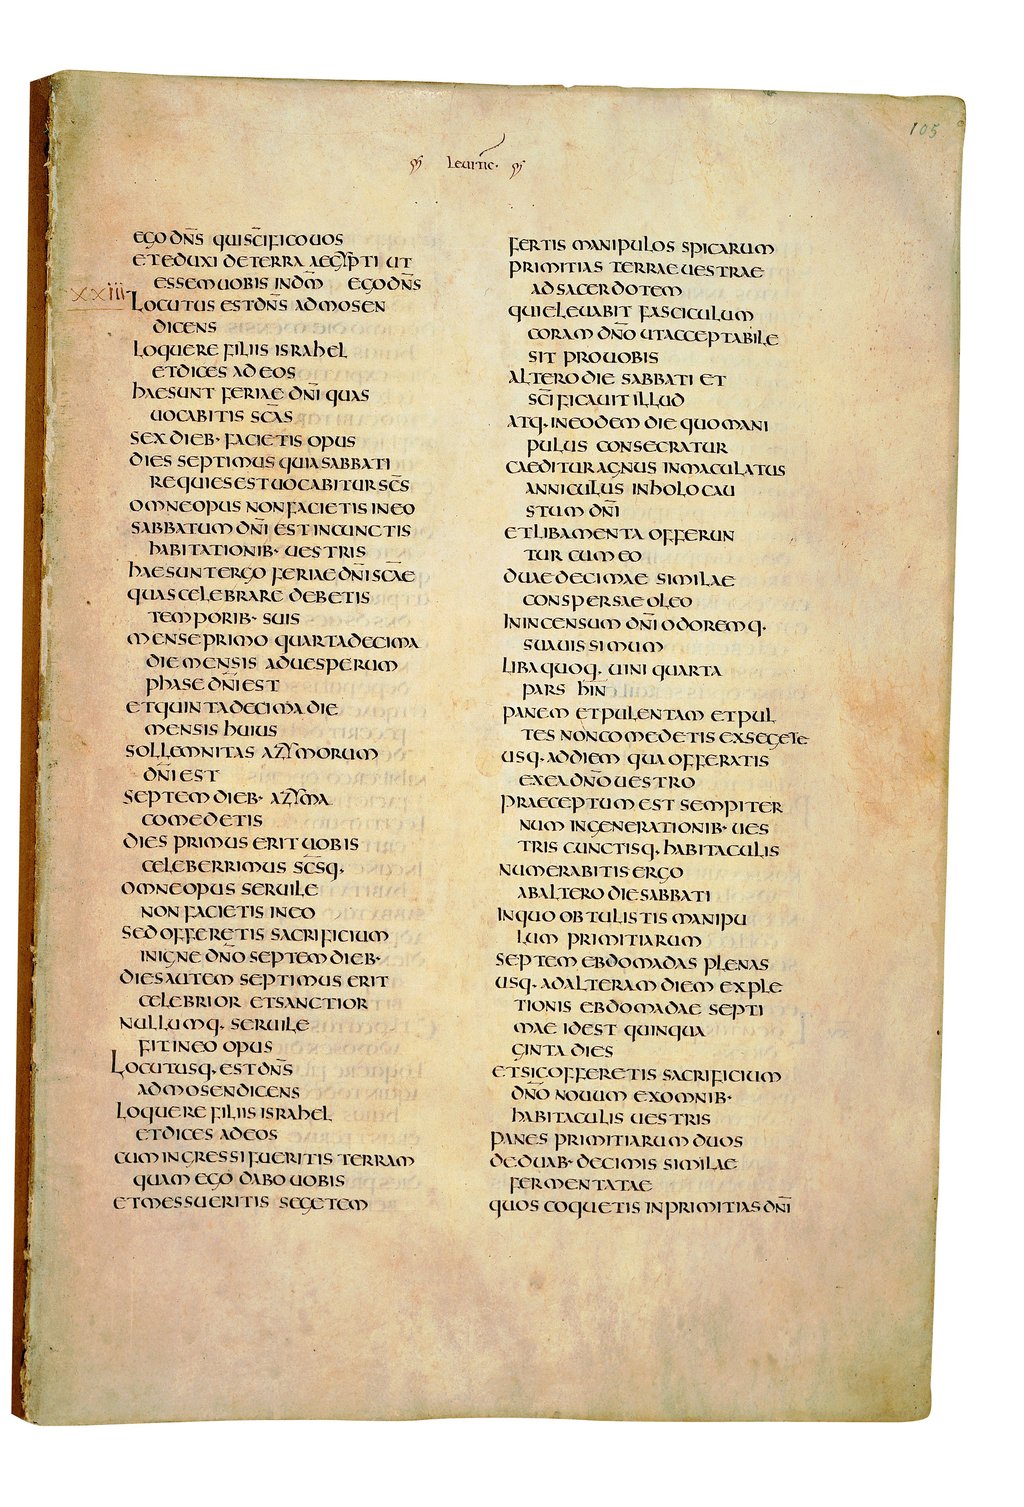 105
Leuitic·
ego dn̅s qui sc̅ifico uos
et eduxi de terra aegypti ut
essem uobis in dm̅ ego dn̅s
XXIII
Locutus est dn̅s ad mosen
dicens
loquere filiis israhel
et dices ad eos
hae sunt feriae dn̅i quas
uocabitis sc̅as
sex dieb· facietis opus
dies septimus quia sabbati
requies est uocabitur sc̅s
omne opus non facietis in eo
sabbatum dn̅i est in cunctis
habitationib· uestris
hae sunt ergo feriae dn̅i sc̅ae
quas celebrare debetis
temporib· suis
mense primo quarta decima
die mensis ad uesperum
phase dn̅i est
et quinta decima die
mensis huius
sollemnitas azymorum
dn̅i est
septem dieb· azyma
comedetis
dies primus erit uobis
celeberrimus sc̅sq·
omne opus seruile
non facietis in eo
sed offeretis sacrificium
in igne dn̅o septem dieb·
dies autem septimus erit
celebrior et sanctior
nullumq· seruile
fit in eo opus
Locutusq· est dn̅s
ad mosen dicens
loquere filiis israhel
et dices ad eos
cum ingressi fueritis terram
quam ego dabo uobis
et messueritis segetem
fertis manipulos spicarum
primitias terrae uestrae
ad sacerdotem
qui eleuabit fasciculum
coram dn̅o ut acceptabile
sit pro uobis
altero die sabbati et
sc̅ificauit illud
atq· in eodem die quo mani
pulus consecratur
caeditur agnus inmaculatus
anniculus in holocau
stum dn̅i
et libamenta offerun
tur cum eo
duae decimae similae
conspersae oleo
in incensum dn̅i odoremq·
suauissimum
liba quoq· uini quarta
pars hin
panem et pulentam et pul
tes non comedetis ex segete
usq· ad diem qua offeratis
ex ea dn̅o uestro
praeceptum est sempiter
num in generationib· ues
tris cunctisq· habitaculis
numerabitis ergo
ab altero die sabbati
in quo obtulistis manipu
lum primitiarum
septem ebdomadas plenas
usq· ad alteram diem exple
tionis ebdomadae septi
mae id est quinqua
ginta dies
et sic offeretis sacrificium
dn̅o nouum ex omnib·
habitaculis uestris
panes primitiarum duos
de duab· decimis similae
fermentatae
quos coquetis in primitias dn̅i